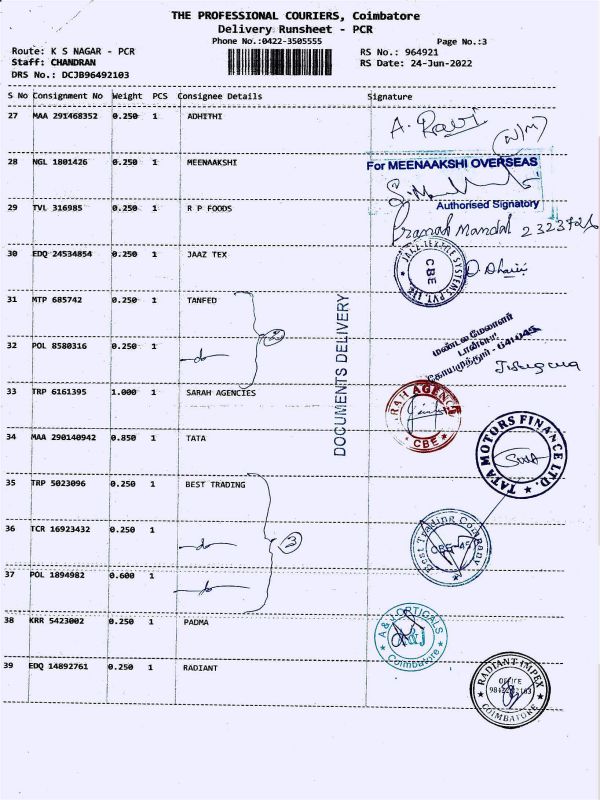 THE PROFESSIONAL COURIERS, Coimbatore
Delivery Runsheet - PCR
Phone No.:0422-3505555
Page No.:3
Route: K S NAGAR - PCR
RS No.: 964921
Staff: CHANDRAN
RS Date: 24-Jun-2022
DRS No.: DCJB96492103
S No Consignment No Weight PCS Consignee Details Signature
27 MAA 291468352 0.250 1 ADHITHI A. Ravi
28 NGL 1801426 0.250 1 MEENAAKSHI
For MEENAAKSHI OVERSEAS
Authorised Signatory
29 TVL 316985 0.250 1 R P FOODS
Pranab Mandal
30 EDQ 24534854 0.250 1 JAAZ TEX
JAAZ TEXTILE SYSTEMS PVT. LTD.
CBE
31 MTP 685742 0.250 1 TANFED
DOCUMENTS DELIVERY
32 POL 8580316 0.250 1 -do-
2
மண்டல மேலாளர்
டான்பெட்
கோயமுத்தூர் - 641045
33 TRP 6161395 1.000 1 SARAH AGENCIES
CBE
34 MAA 290140942 0.850 1 TATA
TATA MOTORS FINANCE LTD.
35 TRP 5023096 0.250 1 BEST TRADING
36 TCR 16923432 0.250 1 -do-
3
Best Trading Company
CBE-45
37 POL 1894982 0.600 1 -do-
38 KRR 5423002 0.250 1 PADMA
A & J OPTICALS
A&J
Coimbatore
39 EDQ 14892761 0.250 1 RADIANT
RADIANT IMPEX
COIMBATORE